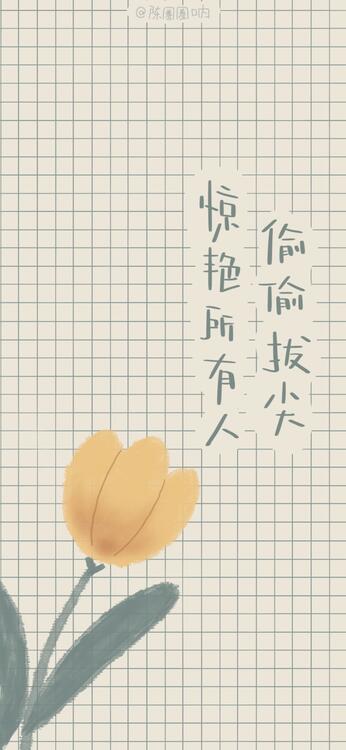 @陈圑圑呐
偷偷拔尖
惊艳所有人